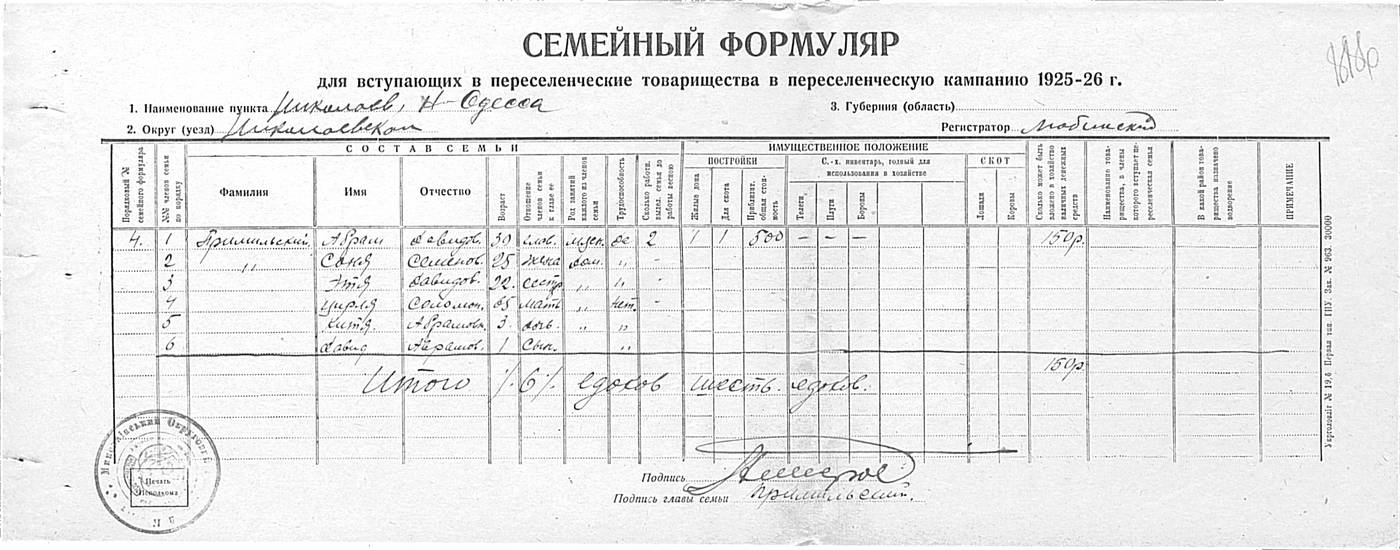 СЕМЕЙНЫЙ ФОРМУЛЯР
для вступающих в переселенческие товарищества в переселенческую кампанию 1925-26 г.
1. Наименование пункта Николаев, Н-Одесса
3. Губерния (область)
2. Округ (уезд) Николаевский
Регистратор
СОСТАВ СЕМЬИ
ИМУЩЕСТВЕННОЕ ПОЛОЖЕНИЕ
Порядковый № семейного формуляра
№№ членов семьи по порядку
Фамилия
Имя
Отчество
Возраст
Отношение членов семьи к главе ее
Род занятий каждого из членов семьи
Трудоспособность
Сколько работн. выдел. семья до работы весною
ПОСТРОЙКИ
Жилые дома
Для скота
Приблизит. общая стоимость
С.-х. инвентарь, годный для использования в хозяйстве
Телеги
Плуги
Бороны
СКОТ
Лошади
Коровы
Сколько может быть вложено в хозяйство наличных денежных средств
Наименование товарищества, в члены которого вступает переселенческая семья
В какой район товарищества назначено водворение
ПРИМЕЧАНИЕ
4. 1 Примильский Абрам Давидов. 30 глав. да 2 1 1 500 — — — 150р.
2 " Соня Семенов. 25 жена дом. " -
3 Этя Давидов. 22 сестр " " -
4 Цирля Соломон. 65 мать " нет. -
5 Китя Абрамовн. 3 дочь. " "
6 Давид Абрамов. 1 Сын. "
150р.
Итого /. 6 /. едоков шесть. едоков.
Подпись
Подпись главы семьи Примильский.
Миколаївський Округовий
Печать Исполкома
Укрголовліт № 19,6 Первая тип. ГПУ. Зак. № 963. 30000